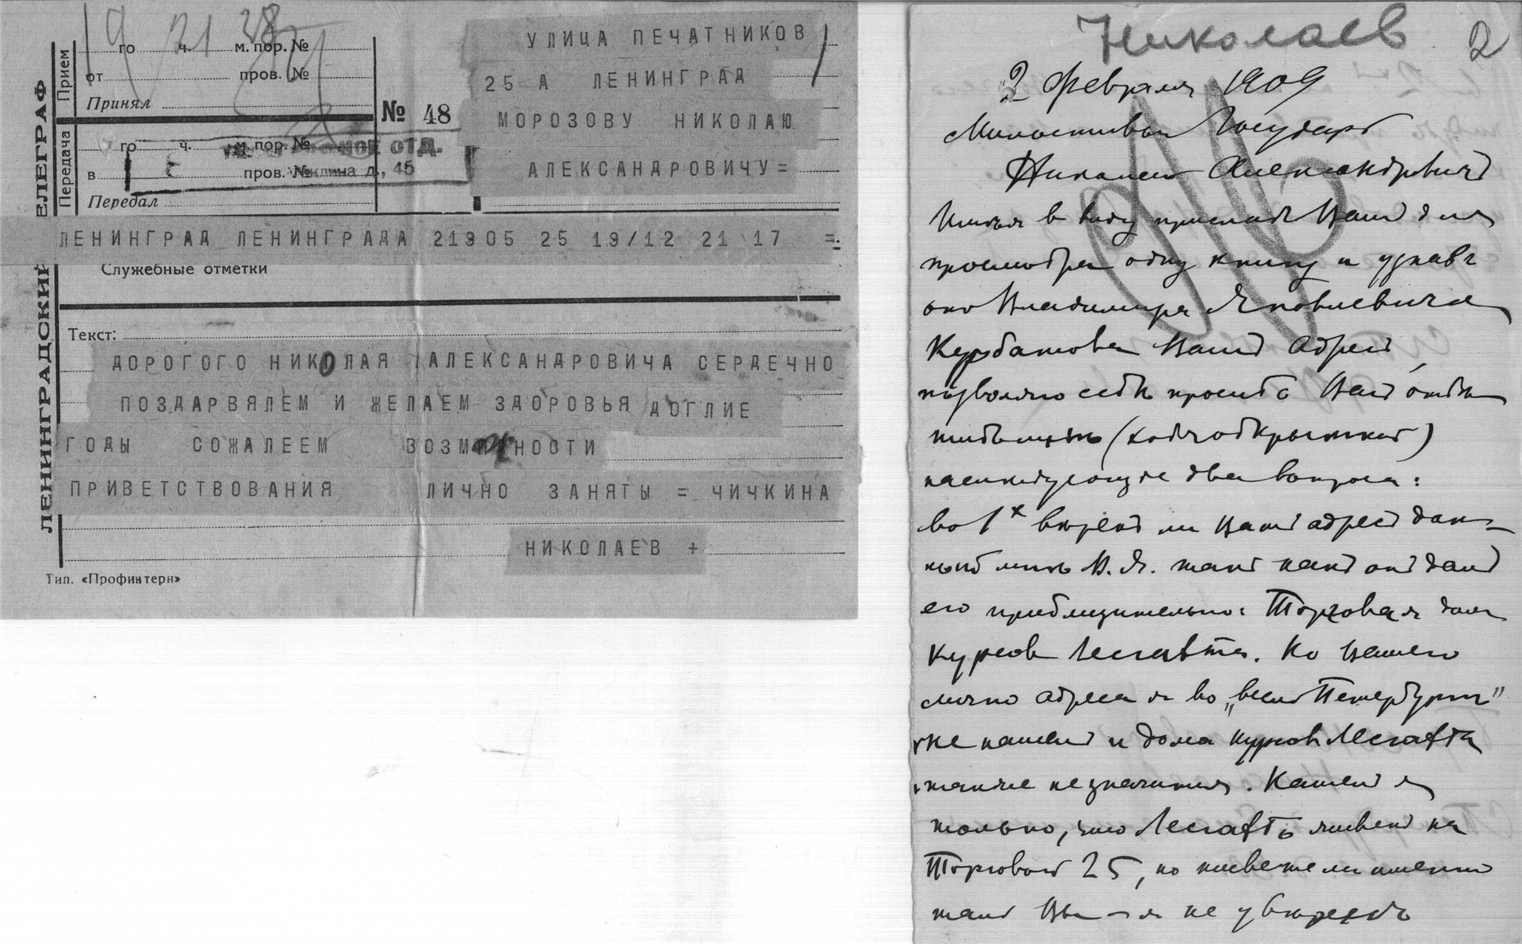 19 21 38
го ч. м. пор. №
от пров. №
Принял
Прием
Передача
№ 48
го ч. м. пор. №
в пров. №
Передал
ОТД.
д., 45
ЛЕНИНГРАДСКИЙ ТЕЛЕГРАФ
УЛИЦА ПЕЧАТНИКОВ
25 А ЛЕНИНГРАД
МОРОЗОВУ НИКОЛАЮ
АЛЕКСАНДРОВИЧУ=
ЛЕНИНГРАД ЛЕНИНГРАДА 21905 25 19/12 21 17 =
Служебные отметки
Текст:
ДОРОГОГО НИКОЛАЯ АЛЕКСАНДРОВИЧА СЕРДЕЧНО
ПОЗДАРВЯЛЕМ И ЖЕЛАЕМ ЗДОРОВЬЯ ДОГЛИЕ
ГОДЫ СОЖАЛЕЕМ ВОЗМ НОСТИ
ПРИВЕТСТВОВАНИЯ ЛИЧНО ЗАНЯТЫ = ЧИЧКИНА
НИКОЛАЕВ +
Тип. «Профинтерн»
Николаев 2
2 февраля 1909
Милостивый Государь
Николай Александровичъ
Имея в виду прислать Вамъ для
просмотра одну книгу и узнавъ
отъ Владимира Яковлевича
Курбатова Вашъ адресъ,
позволяю себѣ просить Васъ отвѣ
тить мнѣ (хотя открыткой)
на следующие два вопроса:
во 1х вѣренъ ли Вашъ адресъ дан-
ный мнѣ В. Я. такъ какъ онъ далъ
его приблизительно: Торговая домъ
Курсов Лесгафта. Но Вашего
лично адреса я во „весь Петербургъ"
не нашелъ и дома курсов Лесгафта
также не значится. Нашелъ я
только, что Лесгафтъ живетъ на
Торговой 25, но живете ли именно
тамъ Вы — я не увѣренъ